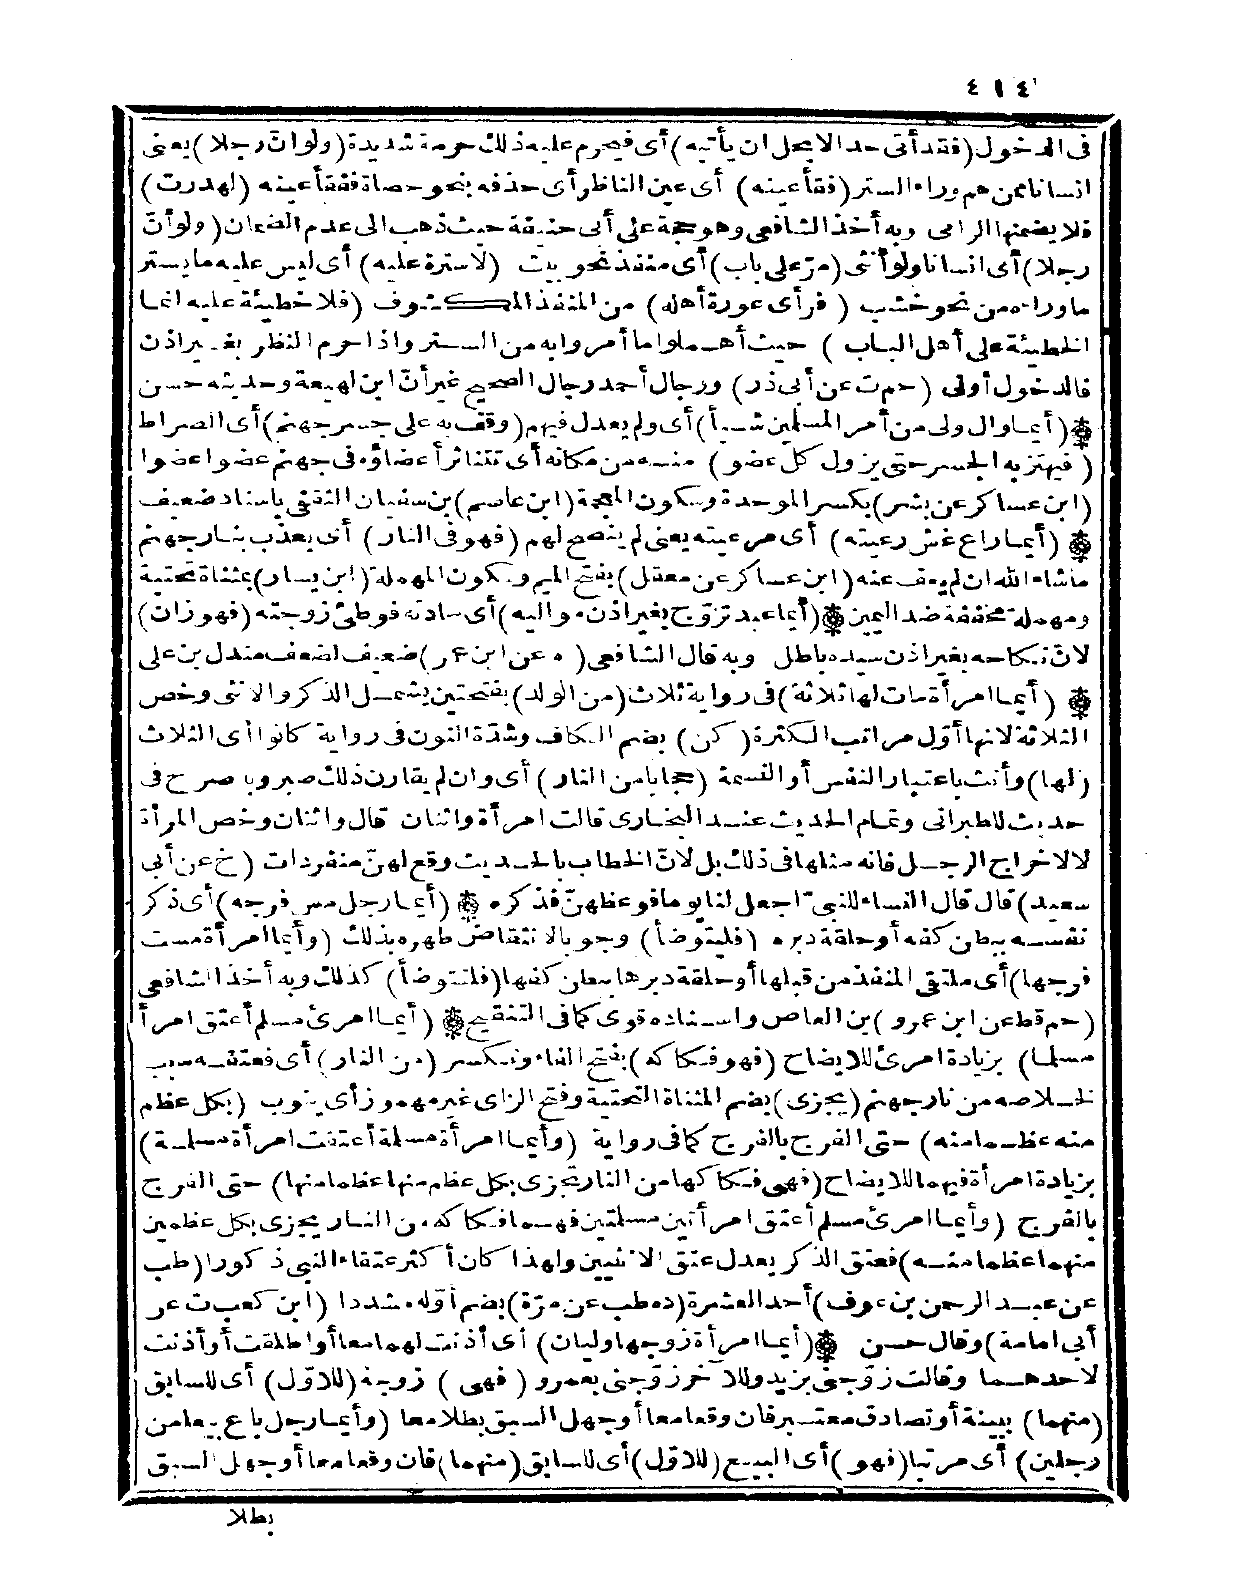 ٤١٤
فى الدخول (فقد أتى حدا لا يحل ان يأتيه) أى فيحرم عليه ذلك حرمة شديدة (ولو انّ رجلا) يعنى
انسانا ممن هم وراء الستر (فقأ عينه) أى عين الناظر أى حذفه بنحو حصاة ففقأ عينه (لهدرت)
فلا يضمنها الرامى وبه أخذ الشافعى وهو حجة على أبى حنيفة حيث ذهب الى عدم الضمان (ولو أنّ
رجلا) أى انسانا ولو أنثى (مرّ على باب) أى منفذ نحو بيت (لا سترة عليه) أى ليس عليه ما يستر
ما وراءه من نحو خشب (فرأى عورة أهله) من المنفذ المكشوف (فلا خطيئة عليه انما
الخطيئة على أهل الباب) حيث أهملوا ما أمروا به من الستر واذا حرم النظر بغير اذن
فالدخول أولى (حم ت عن أبى ذر) ورجال أحمد رجال الصحيح غير أنّ ابن لهيعة وحديثه حسن
(أيما وال ولى من أمر المسلمين شيأ) أى ولم يعدل فيهم (وقف به على جسر جهنم) أى الصراط
(فيهتز به الجسر حتى يزول كل عضو) منه من مكانه أى تتناثر أعضاؤه فى جهنم عضوا عضوا
(ابن عساكر عن بشر) بكسر الموحدة وسكون المعجمة (ابن عاصم) بن سفيان الثقفى باسناد ضعيف
(أيما راع غش رعيته) أى مرعيته يعنى لم ينصح لهم (فهو فى النار) أى يعذب بنار جهنم
ماشاء الله ان لم يعف عنه (ابن عساكر عن معقل) بفتح الميم وسكون المهملة (ابن يسار) بمثناة تحتية
ومهملة مخففة ضد اليمين (أيما عبد تزوّج بغير اذن مواليه) أى سادته فوطئ زوجته (فهو زان)
لانّ نكاحه بغير اذن سيده باطل وبه قال الشافعى (ه عن ابن عمر) ضعيف لضعف مندل بن على
(أيما امرأة مات لها ثلاثة) فى رواية ثلاث (من الولد) بفتحتين يشمل الذكر والانثى وخص
الثلاثة لانها أوّل مراتب الكثرة (كن) بضم الكاف وشدّة النون فى رواية كانوا أى الثلاث
(لها) وأنث باعتبار النفس أو النسمة (حجابا من النار) أى وان لم يقارن ذلك صبر وبا صرح فى
حديث للطبرانى وتمام الحديث عند البخارى قالت امرأة واثنان قال واثنان وخص المرأة
لا لاخراج الرجل فانه مثلها فى ذلك بل لانّ الخطاب بالحديث وقع لهنّ منفردات (خ عن أبى
سعيد) قال قال النساء للنبى اجعل لنا يوما فوعظهنّ فذكره (أيما رجل مس فرجه) أى ذكر
نفسه ببطن كفه أو حلقة دبره (فليتوّضأ) وجوبا لانتقاض طهره بذلك (وأيما امرأة مست
فرجها) أى ملتقى المنفذ من قبلها أو حلقة دبرها ببطن كفها (فلتتوضأ) كذلك وبه أخذ الشافعى
(حم قط عن ابن عمرو) بن العاص واسناده قوى كما فى التنقيح (أيما امرئ مسلم أعتق امرأ
مسلما) بزيادة امرئ للايضاح (فهو فكاكه) بفتح الفاء وتكسر (من النار) أى فعتقه سبب
لخلاصه من نار جهنم (يجزى) بضم المثناة التحتية وفتح الزاى غير مهموز أى ينوب (بكل عظم
منه عظما منه) حتى الفرج بالفرج كما فى رواية (وأيما امرأة مسلمة أعتقت امرأة مسلمة)
بزيادة امرأة فيهما للايضاح (فهى فكاكها من النار تجزى بكل عظم منها عظما منها) حتى الفرج
بالفرج (وأيما امرئ مسلم أعتق امرأتين مسلمتين فهما فكاكه من النار يجزى بكل عظمين
منهما عظما منه) فعتق الذكر يعدل عتق الانثيين ولهذا كان أكثر عتقاء النبى ذكورا (طب
عن عبد الرحمن بن عوف) أحد العشرة (د ه طب عن مرّة) بضم أوّله مشددا (ابن كعب ت عن
أبى امامة) وقال حسن (أيما امرأة زوجها وليان) أى أذنت لهما معا أو أطلقت أو أذنت
لاحدهما وقالت زوّجنى بزيد وللآخر زوّجنى بعمرو (فهى) زوجة (للاوّل) أى للسابق
(منهما) ببينة أو تصادق معتبر فان وقعا معا أو جهل السبق بطلا معا (وأيما رجل باع بيعا من
رجلين) أى مرتبا (فهو) أى البيع (للاوّل) أى للسابق (منهما) فان وقعا معا أو جهل السبق
بطلا